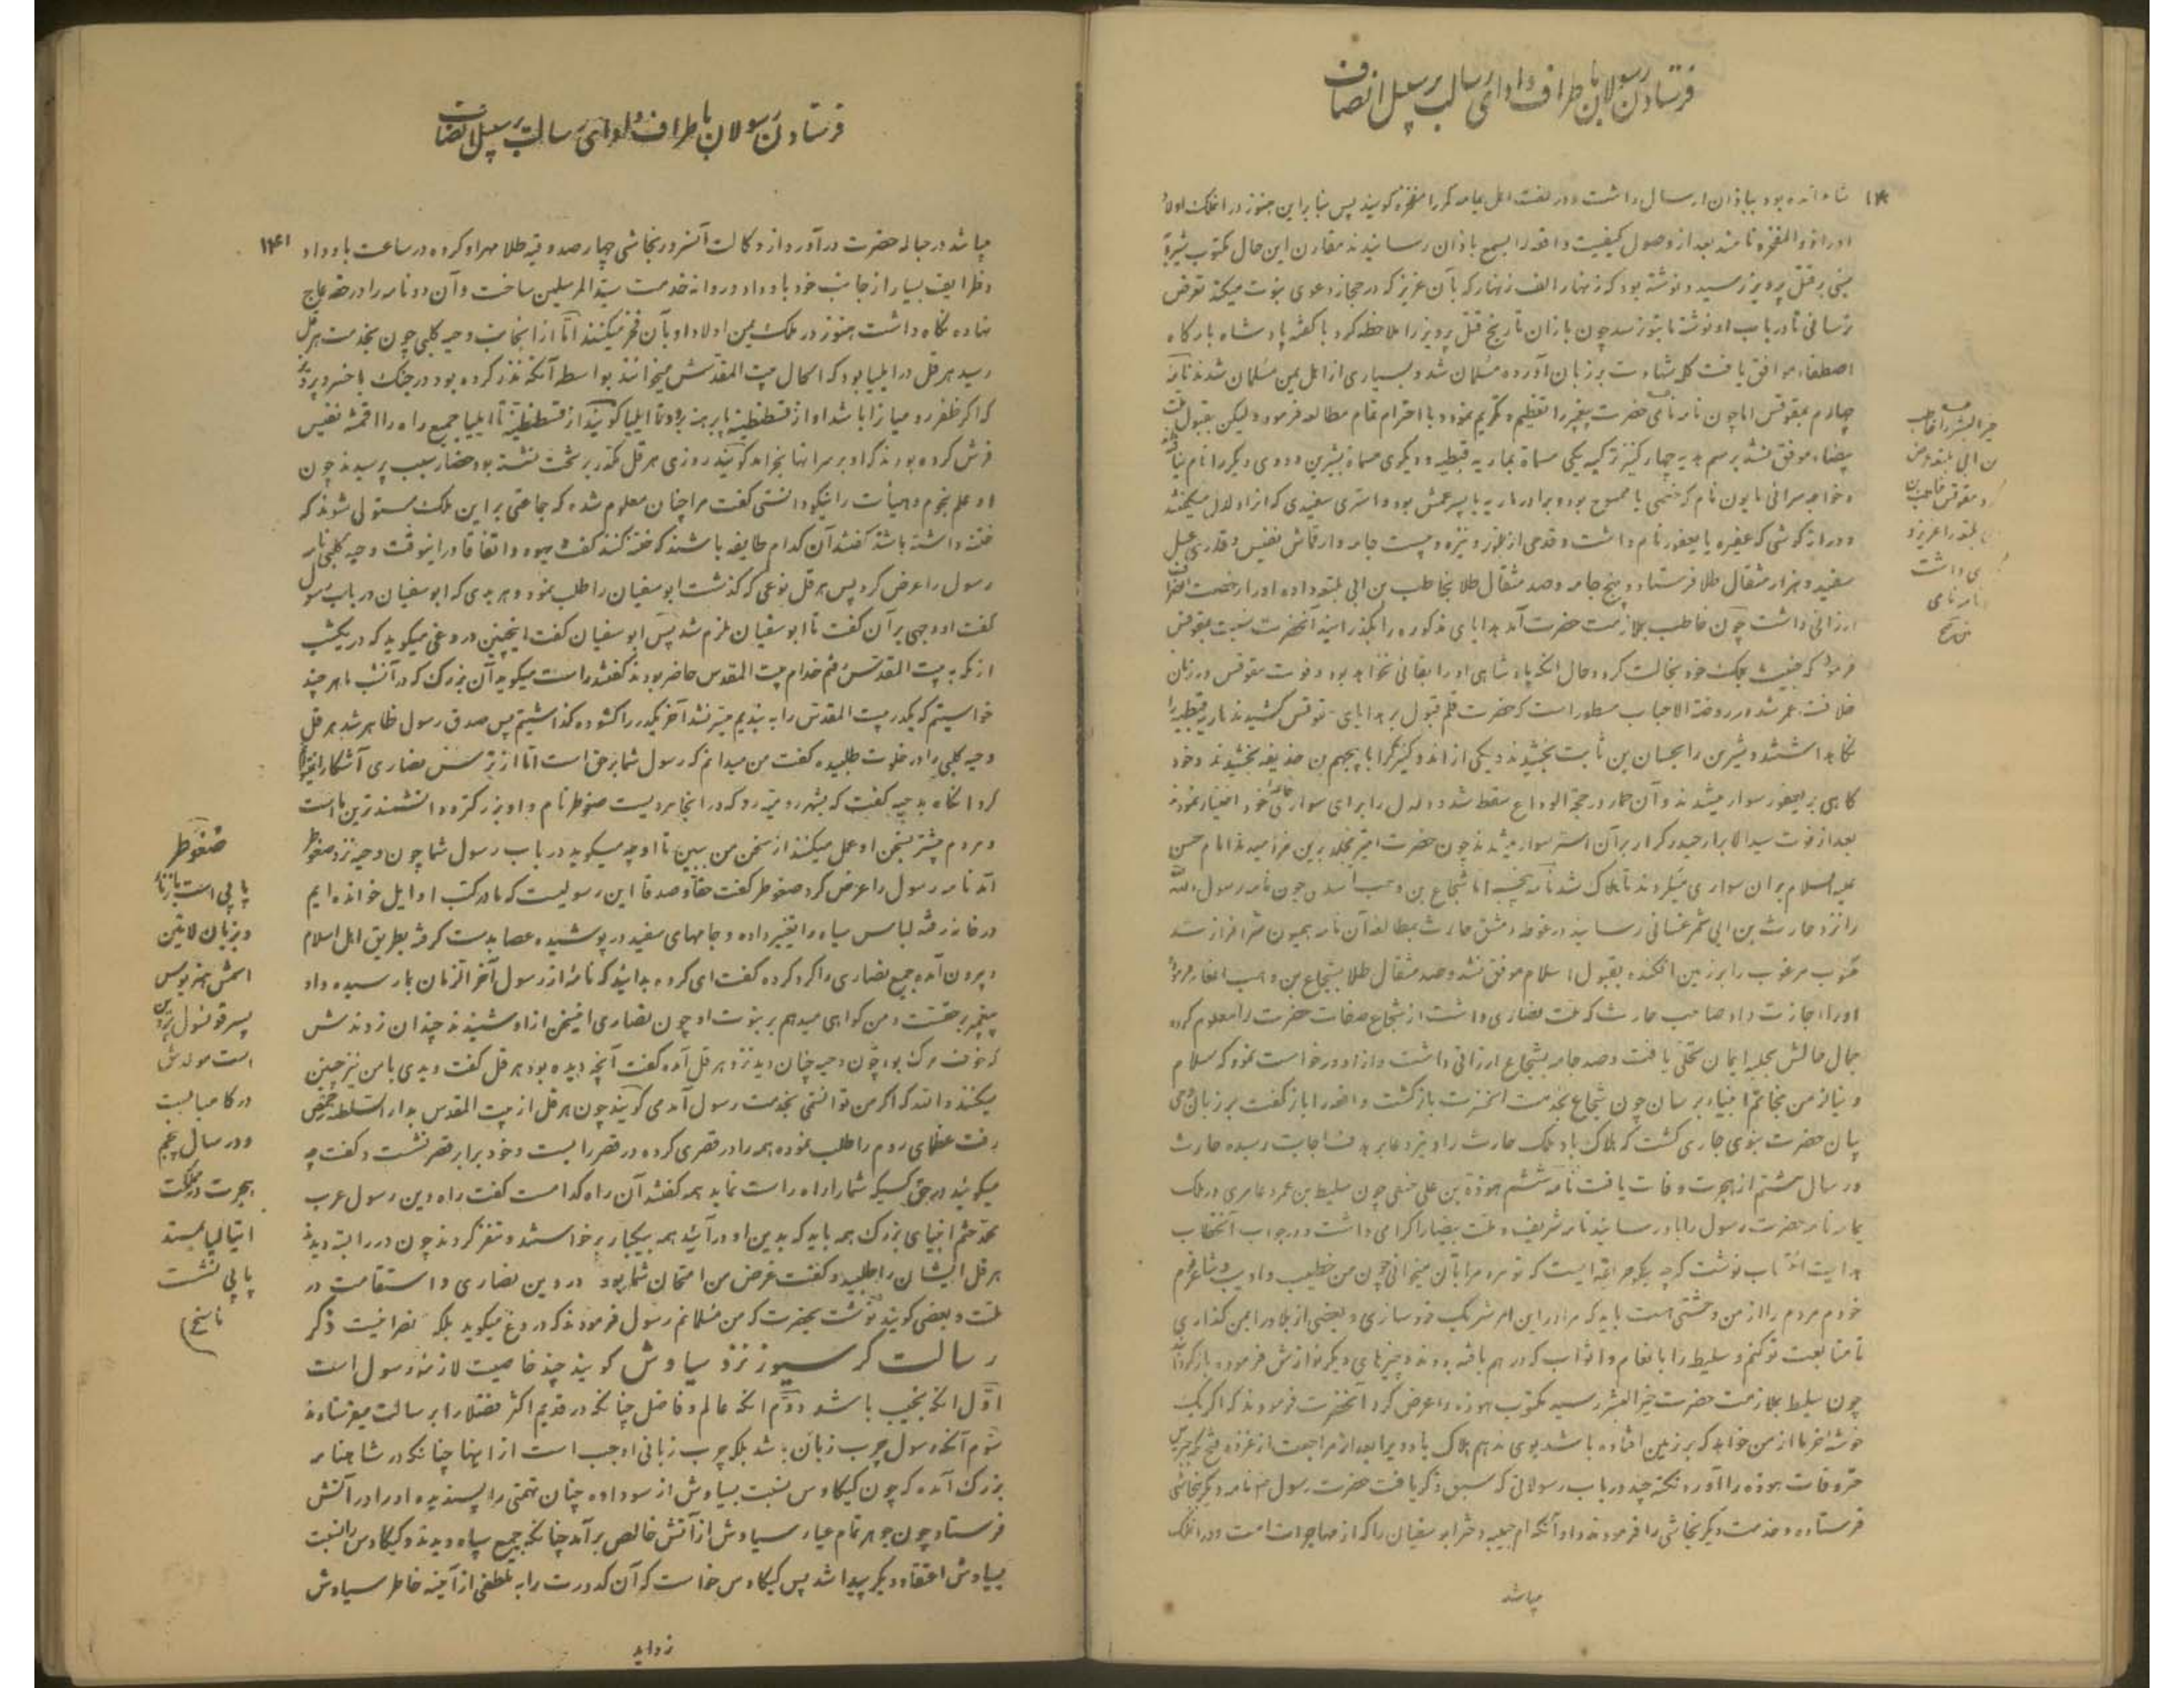 فرستادن رسولان باطراف و ادای رسالت بر سبیل انصاف
۱۴۰
شاه انده بود بباذان ارسال داشت و در لغت اهل یمامه کمر را مفخره گویند پس بنا براین هنوز در انملک اولاد
او را ذوالمفخره نامند بعد از وصول کیفیت واقعه را بسمع باذان رسانیدند مقارن این حال مکتوب شیرویه
مبنی بر قتل پرویز رسید و نوشته بود که زنهار الف زنهار که بآن عزیز که در حجاز دعوی نبوت میکند تعرض
نرسانی تا در باب او نوشته ما بتو رسد چون باذان تاریخ قتل پرویز را ملاحظه کرد با گفته پادشاه بارگاه
اصطفاء موافق یافت کلمه شهادت بر زبان آورده مسلمان شد و بسیاری از اهل یمن مسلمان شدند نامه
چهارم بمقوقس اما چون نامه نامی حضرت پیغمبر را تعظیم و تکریم نمود و با احترام تمام مطالعه فرمود ولیکن بقبول ملت
بیضاء موفق نشد برسم هدیه چهار کنیز ترکیه یکی مسماة بماریه قبطیه و دیگری مسماة بشیرین و دوی دیگر را نام
و خواجه سرائی مابون نام که خصی یا ممسوح بود و برادر ماریه یا پسر عمش بود و استری سفیدی که انرا دلدل میگفتند
و دراز گوشی که عفیره یا یعفور نام داشت و قدحی از بلور و نیزه و بیست جامه و از قماش نفیس و قدری عسل
سفید و هزار مثقال طلا فرستاد و پنج جامه و صد مثقال طلا بحاطب بن ابی بلتعه داده او را رخصت انصراف
ارزانی داشت چون حاطب بملازمت حضرت آمد هدایای مذکوره را بگذرانید آنحضرت نسبت بمقوقس
فرمود که خبیث بملک خود بخالت کرد و حال انکه پادشاهی او را بقائی نخواهد بود و فوت مقوقس در زمان
خلافت عمر شد و در روضة الاحباب مسطور است که حضرت قلم قبول بر هدایای مقوقس کشیدند ماریه قبطیه را
نگاهداشتند و شیرین را بحسان بن ثابت بخشیدند و یکی از اندو کنیزک را با بیجهم بن حذیفه بخشیدند و خود
گاهی بر یعفور سوار میشدند و آن حمار در حجة الوداع سقط شد و دلدل را برای سواری خاصه خود امتیاز نمودند
بعد از فوت سید الابرار حیدر کرار بر آن استر سوار میشدند چون حضرت امیر بخلد برین خرامیدند امام حسن
علیه السلام بران سواری میکردند تا هلاک شد نامه پنجم اما شجاع بن وهب اسدی چون نامه رسول الله
را نزد حارث بن ابی شمر غسانی رسانید در غوطه دمشق حارث بمطالعه آن نامه همیون سرافراز شد
مکتوب مرغوب را بر زمین افکنده بقبول اسلام موفق نشد و صد مثقال طلا بشجاع بن وهب انعام فرمود
او را اجازت داد صاحب حارث که ملت نصاری داشت از شجاع صفات حضرت را معلوم کرده
جمال حالش بحلیه ایمان تحلی یافت و صد جامه بشجاع ارزانی داشت و از او درخواست نمود که سلام
و نیاز من بخاتم انبیاء برسان چون شجاع بخدمت انحضرت بازگشت و اقعه را باز گفت بر زبان وحی
بیان حضرت نبوی جاری گشت که هلاک باد ملک حارث را و تیر دعا بر هدف اجابت رسیده حارث
در سال هشتم از هجرت وفات یافت نامه ششم هوذة بن علی حنفی چون سلیط بن عمرو عامری در ملک
یمامه نامه حضرت رسول را باو رسانید نامه شریف و ملت بیضا را گرامی داشت و در جواب آنجناب
هدایت انتساب نوشت که چه نیکو طریقه ایست که تو مردمرا بآن میخوانی چون من خطیب و ادیب و شاعر قوم
خودم مردم را از من وحشتی هست باید که مرا در این امر شریک خود سازی و بعضی از بلاد را بمن گذاری
تا متابعت تو کنم و سلیط را با نعام و اثواب که در هم بافته بودند و چیزهای دیگر نوازش فرموده بازگردانید
چون سلیط بملازمت حضرت خیر البشر رسید مکتوب هوذه را عرض کرد آنحضرت فرمودند که اگر یک
خوشه خرما از من خواهد که بر زمین افتاده باشد بوی ندهم هلاک باد ویرا بعد از مراجعت از غزوه فتح مکه جبرئیل
خبر وفات هوذه را آورد نکته چند در باب رسولانی که سبق ذکر یافت حضرت رسول صه نامه دیگر بنجاشی
فرستاده و خدمت دیگر نجاشی را فرمودند و او آنکه ام حبیبه دختر ابو سفیان را که از مهاجرات است و در انملک
میباشد
خیر البشر را حاطب
بن ابی بلتعه نزد
مقوقس
بلتعه را عزیز
داشت
نامه نامی
فرستادن رسولان باطراف و ادای رسالت بر سبیل انصاف
۱۴۱
میباشد در حباله حضرت در آورد و از وکالت آنسرور نجاشی چهارصد وقیه طلا مهر او کرده در ساعت باو داد
و ظرایف بسیار از جانب خود باو داد و روانه خدمت سید المرسلین ساخت و آن دو نامه را در حقه عاج
نهاده نگاه داشت هنوز در ملک یمن اولاد او بآن فخر میکنند اما از انجانب دحیه کلبی چون بخدمت هرقل
رسید هرقل در ایلیا بود که الحال بیت المقدسش میخوانند بواسطه آنکه نذر کرده بود در جنک با خسرو پرویز
که اگر ظفر رومیانرا باشد او از قسطنطنیه پا برهنه برود تا ایلیا گویند از قسطنطنیه تا ایلیا جمیع راه را اقمشه نفیس
فرش کرده بودند که او بر سر انها بخرامد گویند روزی هرقل مکدر بر تخت نشسته بود حضار سبب پرسیدند چون
او علم نجوم و هیأت را نیکو دانستی گفت مرا چنان معلوم شده که جماعتی بر این ملک مستولی شوند که
ختنه داشته باشند گفتند آن کدام طایفه باشند که ختنه کنند گفت یهود و اتفاقا در اینوقت دحیه کلبی نامه
رسول را عرض کرد پس هرقل بنوعی که گذشت ابو سفیان را طلب نمود و هر بدی که ابو سفیان در باب رسول
گفت او وجهی بر آن گفت تا ابو سفیان ملزم شد پس ابو سفیان گفت اینچنین دروغی میگوید که در یکشب
از مکه به بیت المقدس رفتم خدام بیت المقدس حاضر بودند گفتند راست میگوید آن بزرک که در آنشب ما هر چند
خواستیم که یکدر بیت المقدس را به بندیم میسر نشد آخر یکدر را گشوده گذاشتیم پس صدق رسول ظاهر شد هرقل
دحیه کلبی را در خلوت طلبیده گفت من میدانم که رسول شما بر حق است اما از ترس نصاری آشکارا نمیتوانم
کرد انگاه بدحیه گفت که بشهر رومیه رو که در انجا مردیست صغوطر نام و او بزرکتر و دانشمند ترین ما است
و مردم بیشتر بسخن او عمل میکنند از سخن من ببین تا او چه میگوید در باب رسول شما چون دحیه نزد صغوطر
آمد نامه رسول را عرض کرد صغوطر گفت حقا و صدقا این رسولیست که ما در کتب اوایل خوانده ایم
در خانه رفته لباس سیاه را تغییر داده و جامهای سفید در پوشیده عصا بدست گرفته بطریق اهل اسلام
بیرون آمده جمیع نصاری را گرد کرده گفت ای گروه بدانید که نامه از رسول آخر الزمان بما رسیده و او
پیغمبر بحقست و من گواهی میدهم بر نبوت او چون نصاری اینسخن از او شنیدند چندان زدندش
که خوف مرگ بود چون دحیه چنان دید نزد هرقل آمده گفت آنچه دیده بود هرقل گفت دیدی با من نیز چنین
میکنند والله که اگر من توانستمی بخدمت رسول آمدمی گویند چون هرقل از بیت المقدس بدار السلطنه حمص
رفت عظمای روم را طلب نموده همه را در قصری کرده در قصر را بست و خود برابر قصر نشست و گفت چه
میگوئید در حق کسیکه شمارا راه راست نماید همه گفتند آن راه کدامست گفت راه و دین رسول عرب
محمد ختم انبیای بزرک همه باید که بدین او در آئید همه بیکبار برخواستند و متفرق گردند چون در را بسته دیدند
هرقل ایشان را طلبید و گفت غرض من امتحان شما بود در دین نصاری و استقامت در
ملت و بعضی گویند نوشت بحضرت که من مسلمانم رسول فرمودند که دروغ میگوید بلکه نصرانیست ذکر
رسالت کرسیوز نزد سیاوش گویند چند خاصیت لازمه رسول است
اول انکه نجیب باشد دوم انکه عالم و فاضل چنانکه در قدیم اکثر فضلا را برسالت میفرستادند
سوم آنکه رسول چرب زبان باشد بلکه چرب زبانی اوجب است از اینها چنانکه در شاهنامه
بزرک آمده که چون کیکاوس نسبت بسیاوش از سودابه چنان تهمتی را پسندیده او را در آتش
فرستاد چون جوهر تمام عیار سیاوش از آتش خالص بر آمد چنانکه جمیع سپاه دیدند و کیکاوس را نسبت
بسیاوش اعتقاد دیگر پیدا شد پس کیکاوس خواست که آن کدورت را به تلطفی از آینه خاطر سیاوش
زداید
صغوطر
پاپی است
و بزبان لاتین
اسمش هنریوس
پسر قونسول
است مولدش
در کامپا
و در سال پنجم
هجرت در مملکت
ایتالیا بمسند
پاپی نشست
ناسخ